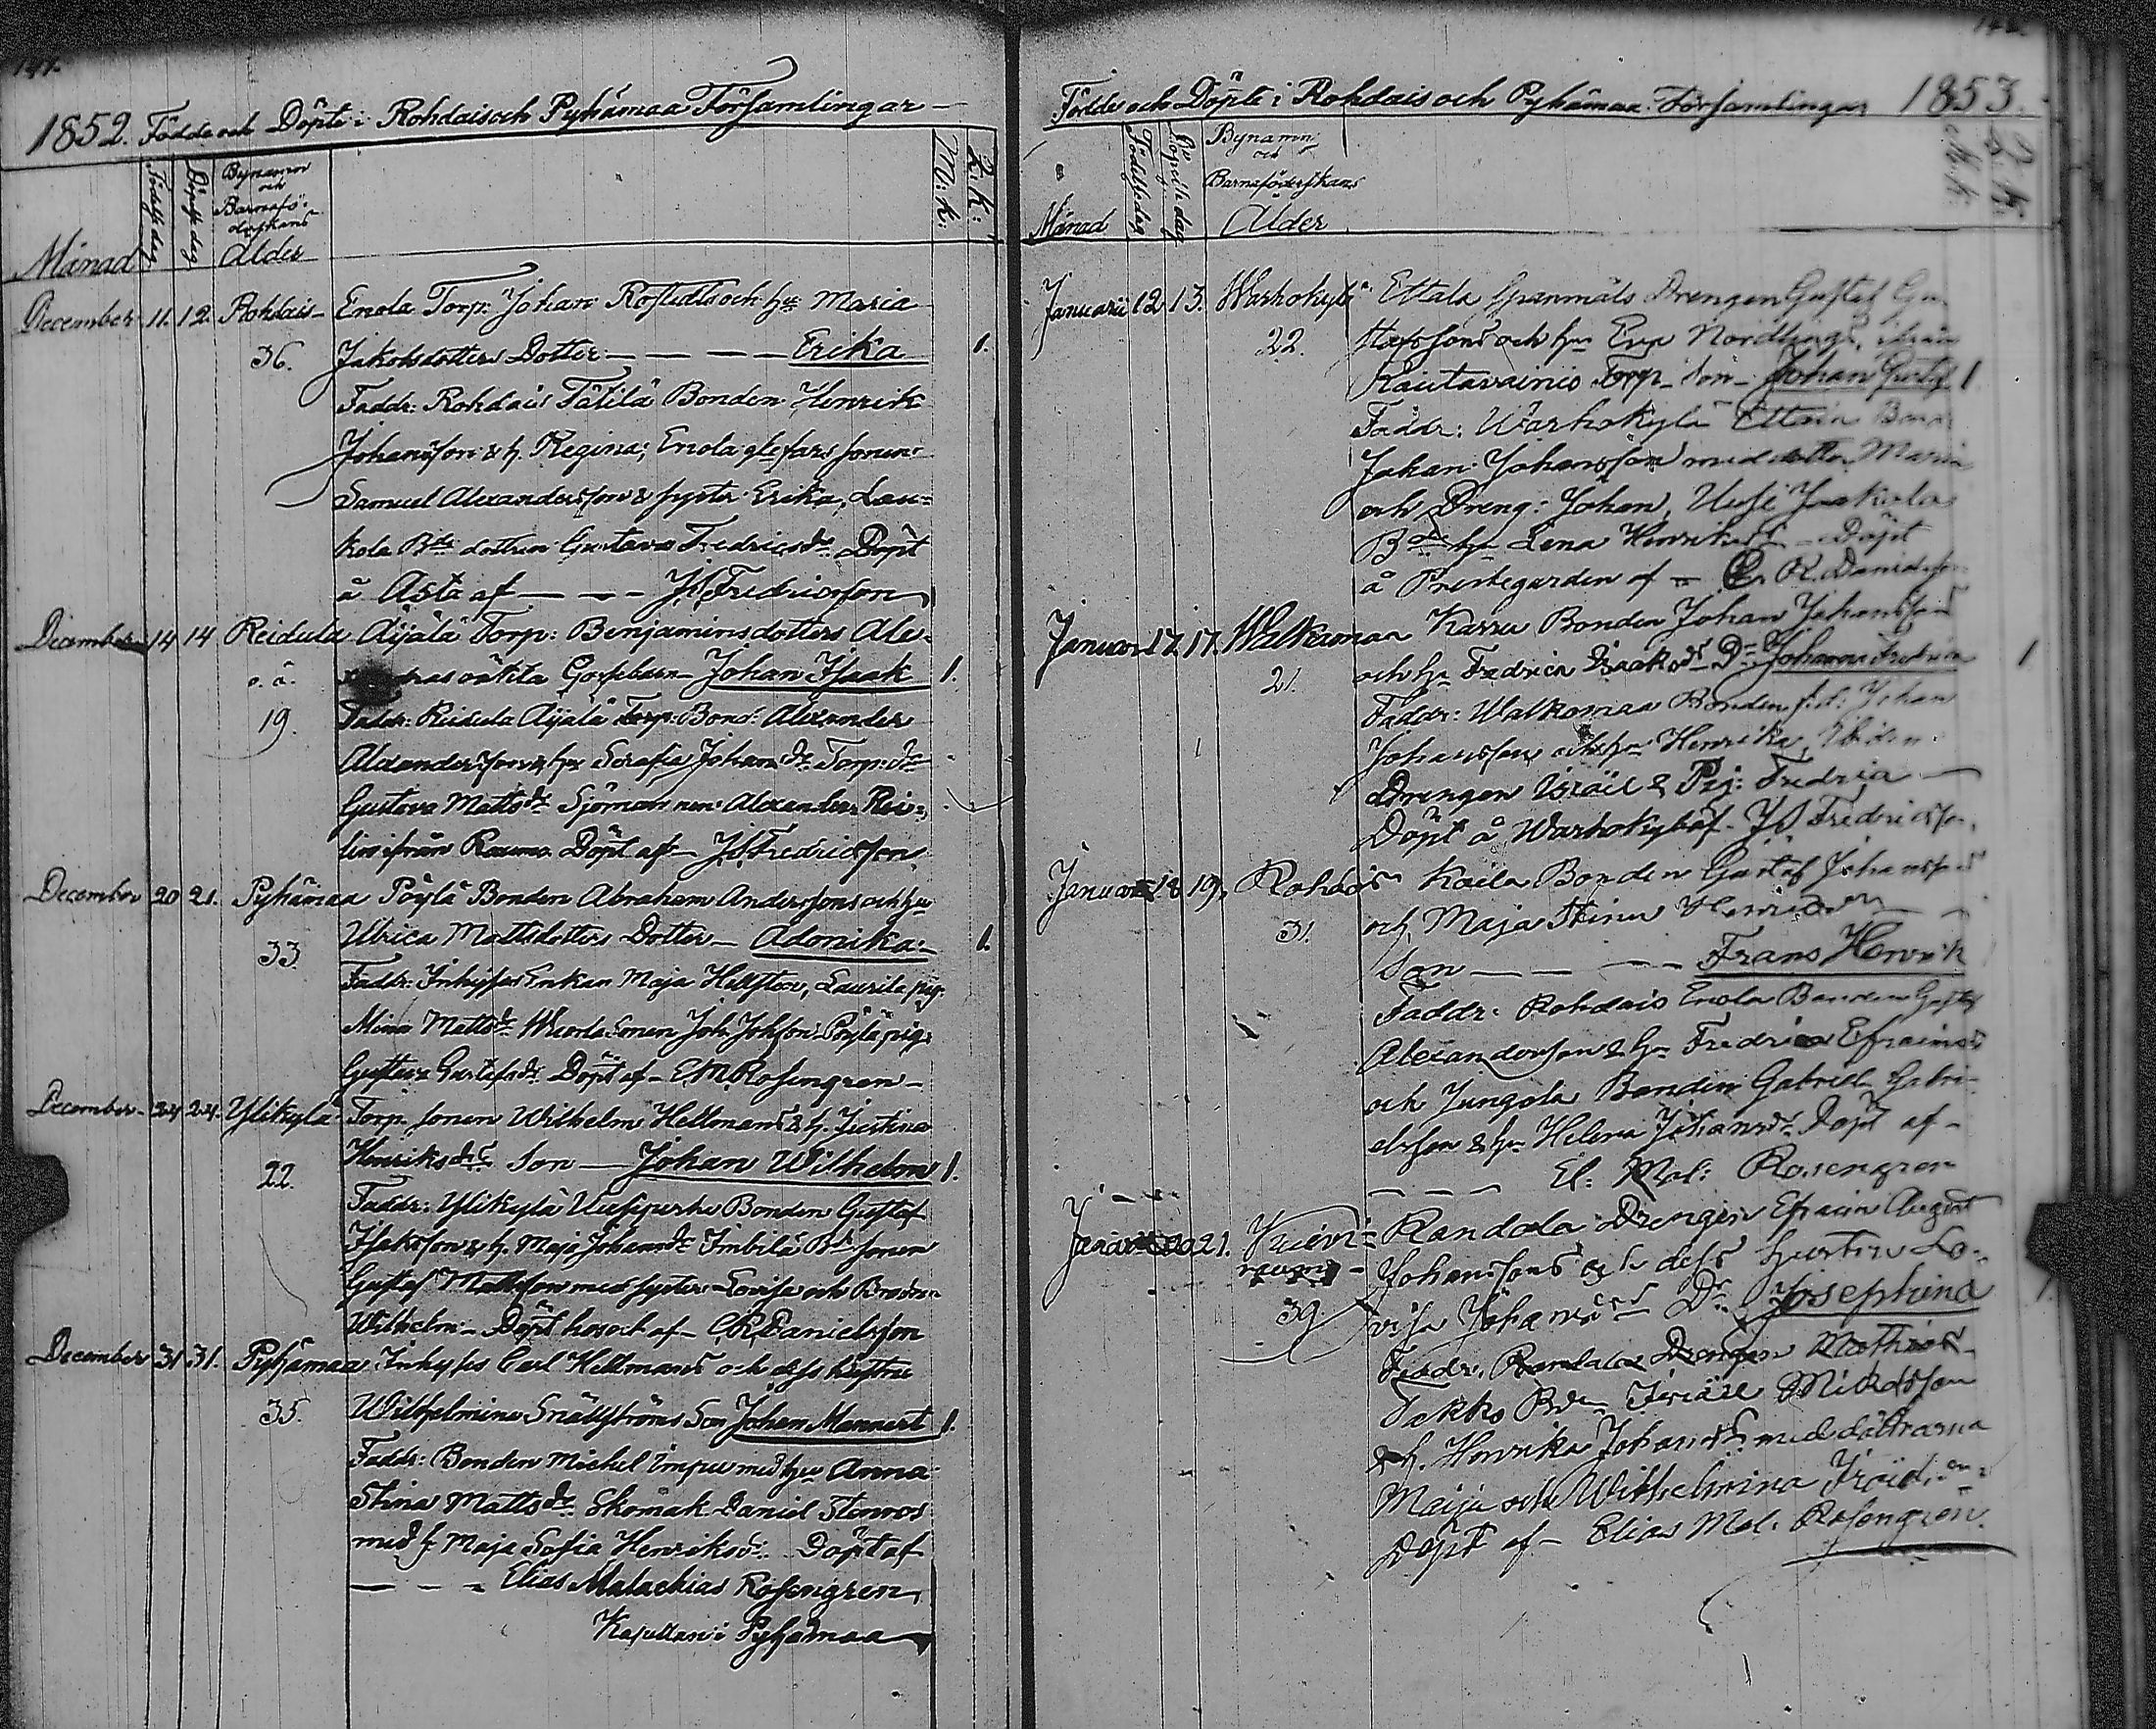 1852. Födde och Döpte i Rohdais och Pyhämaa Församlingar
Månad
Födelse dag
Döpelse dag
Bynamn
och
Barnafö-
derskans
Ålder
M: k:
Q: k:
December 11. 12. Rohdais Enola Torp. Johan Rostedts och h:u Maria
36. Jakobsdotters Dotter Erika 1.
Faddr: Rohdais Tätilä Bonden Henrik
Johansson & h. Regina; Enola sonen
Samuel Alexandersson & syster Erika, Lau-
kola dottren Gustava Fredricsd:r Döpt
å Asta af J Fredricsson
December 14 14 Reidula Äijälä Torp: Benjaminsdotters Ale-
o. ä. oäkta Gossebarn Johan Isaak 1.
19. Faddr: Reidula Äijälä Bond: Alexander
Alexandersson & h:u Serafia Johans d:r Torp: d:r
Gustava Matts d:r Sjöman Alexander Rei-
lin ifrån Raumo Döpt af J Fredricsson
December 20 21. Pyhämaa Pöylä Bonden Abraham Anderssons och h:u
33. Ulrica Mattsdotters Dotter Adonika 1.
Faddr: Inhyses Enkan Maja Hellsten, Laurila pig.
Mina Matts d:r sonen Joh: Johsson Pöylä pig:
Gustava Gustafs d:r Döpt af E M Rosengren
December 24 24. Ylikylä Torp. sonen Wilhelm Hellmans & h. Justina
22. Henriks d:rs Son Johan Wilhelm 1.
Faddr: Ylikylä Uusipurho Bonden Gustaf
Isaksson & h. Maja Johans d:r Imbilä sonen
Gustaf Mattsson med syster Lovisa och
Wilhelm Döpt af C R Danielsson
December 31 31. Pyhämaa Inhyses Carl Hellmans och dess hustru
35. Wilhelmina Snällströms Son Johan Mannert 1.
Faddr: Bonden Michel Impu med h:u Anna
Stina Matts d:r Skomak. Daniel Stenroos
med h: Maja Sofia Henriksd: Döpt af
Elias Malachias Rosengren
Kapellan i Pyhämaa
Födde och Döpte i Rohdais och Pyhämaa Församlingar 1853.
Månad
Födelse dag
Döpelse dag
Bynamn
och
Barnaföderskans
Ålder
M. k.
Q. k.
Januarii 12 13. Warhokylä Ettala Drengen Gustaf Gu-
22. stafssons och h:u Eva Nordlings, ifrån
Rautavainio Torp Son Johan Gustaf 1
Faddr: Warhokylä Bond:
Johan Johansson med dotter Maria
och Dreng: Johan, Uusi Jaakola
h:u Lena Henriks Döpt
å Prestegården af C R. Danielsson
Januari 17. 17. Walkamaa Karru Bonden Johan Johanssons
21. och h:u Fredrica Isaksd:r D:r Johanna Fredrica 1
Faddr: Walkamaa Bonden Johan
Johansson och h:u Henrika, Ibidem
Drengen Isräel & Pig: Fredrica
Döpt å Warhokylä af J Fredricsson
Januari 18 19. Rohdais Kaila Bonden Gustaf Johanssons
31. och Maja Stina
Son Frans Henrik
Faddr: Rohdais Enola Bonden Gustaf
Alexandersson & h:u Fredrica Efraimsd
och Jungola Bonden Gabriel Gabri-
elsson & h:u Helena Johansd:r Döpt af
El: Mal: Rosengren
Januarii 20 21. Randala Drengen Efraim August
39 Johanssons och dess hustru Lo-
visa Johansd:rs D:r Josephina 1.
Faddr. Randala Drengen Mathias
Takko Israel Mickelsson
& h. Henrika Johansd:r med döttrarna
Maija och Wilhelmina
Döpt af Elias Mal: Rosengren.